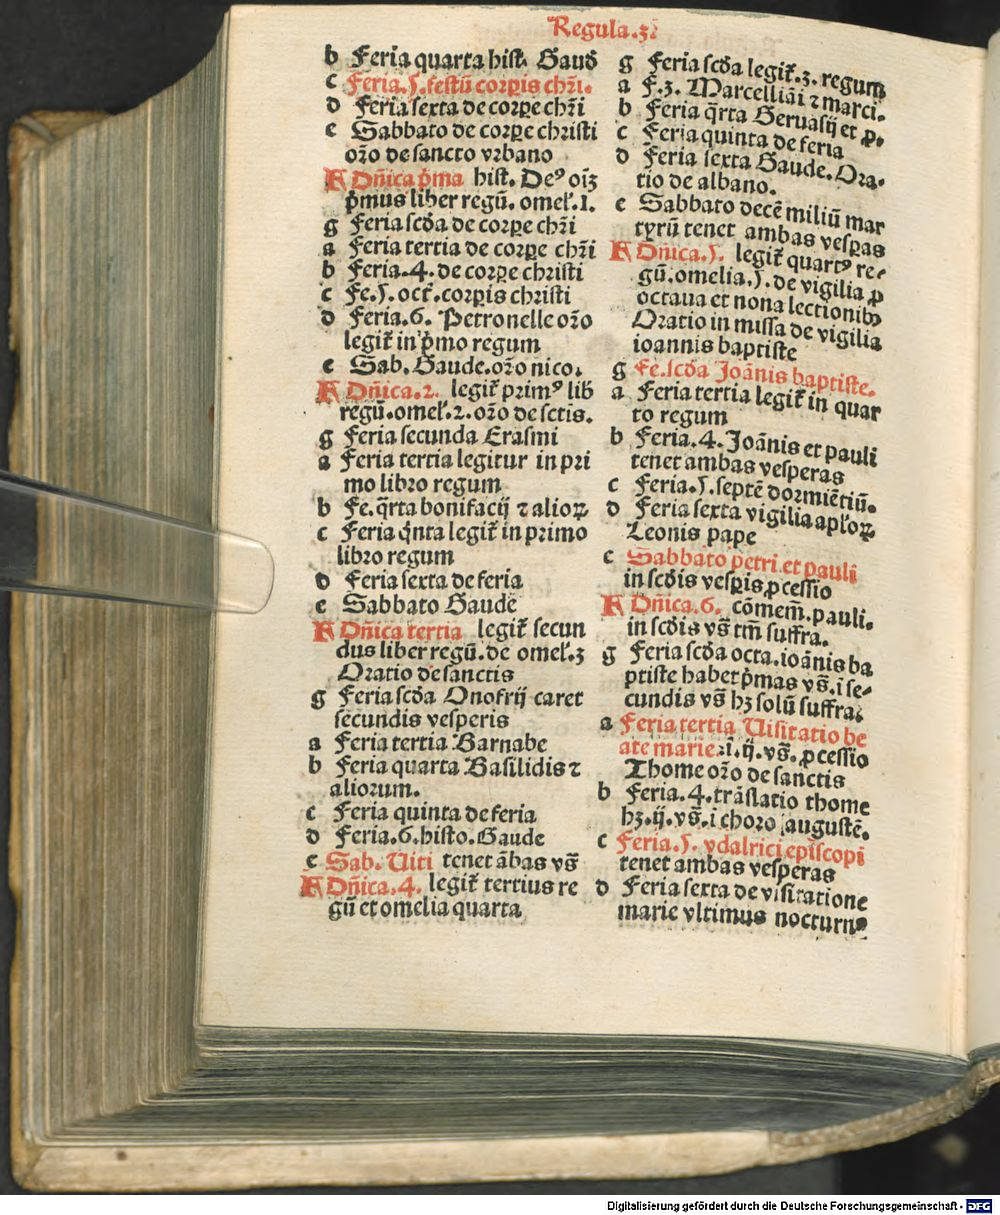 Regula.3ª
b Feria quarta hist. Gaud
c Feria.5.festū corpis chr̄i.
d Feria sexta de corpe chr̄i
e Sabbato de corpe christi
or̄o de sancto vrbano
A Dn̄ica p̄ma hist. Deꝰ oīz
p̄mus liber regū. omel̄.1.
g Feria scd̄a de corpe chr̄i
a Feria tertia de corpe chr̄i
b Feria.4.de corpe christi
c Fe.5.oct̄.corpis christi
d Feria.6. Petronelle or̄o
legit̄ in p̄mo regum
e Sab. Gaude.or̄o nico.
A Dn̄ica.2. legit̄ primꝰ lib̄
regū.omel̄.2.or̄o de sctis.
g Feria secunda Erasmi
a Feria tertia legitur in pri
mo libro regum
b Fe.q̄rta bonifacij ⁊ alioꝝ
c Feria q̄nta legit̄ in primo
libro regum
d Feria sexta de feria
e Sabbato Gaude
A Dn̄ica tertia legit̄ secun
dus liber regū.de omel̄.3
Oratio de sanctis
g Feria scd̄a Onofrij caret
secundis vesperis
a Feria tertia Barnabe
b Feria quarta Basilidis ⁊
aliorum.
c Feria quinta de feria
d Feria.6.histo.Gaude
e Sab. Uiti tenet ābas vs̄
A Dn̄ica.4. legit̄ tertius re
gū et omelia quarta
g Feria scd̄a legit̄.3.regum
a F.3. Marcelliāi ⁊ marci.
b Feria q̄rta Geruasij et ꝓ.
c Feria quinta de feria
d Feria sexta Gaude. Ora-
tio de albano.
e Sabbato decē miliū mar
tyrū tenet ambas vesp̄as
A Dn̄ica.5. legit̄ quartꝰ re-
gū.omelia.5.de vigilia ꝓ
octaua et nona lectionibꝰ
Oratio in missa de vigilia
ioannis baptiste
g Fe.scd̄a Joānis baptiste.
a Feria tertia legit̄ in quar
to regum
b Feria.4.Joānis et pauli
tenet ambas vesperas
c Feria.5.septē dormiētiū.
d Feria sexta vigilia apl̄oꝝ
Leonis pape
e Sabbato petri et pauli
in scd̄is vesp̄is ꝓcessio
A Dn̄ica.6. cōmem̄.pauli.
in scd̄is vs̄ tm̄ suffra.
g Feria scd̄a octa.ioānis ba
ptiste habet p̄mas vs̄.i se-
cundis vs̄ hꝫ solū suffra.
a Feria tertia Uisitatio be
ate marie.i.ij.vs̄.ꝓcessio
Thome or̄o de sanctis
b Feria.4.trāslatio thome
hꝫ.ij.vs̄.i choro augustē.
c Feria.5. vdalrici episcopi
tenet ambas vesperas
d Feria sexta de visitatione
marie vltimus nocturnꝰ
Digitalisierung gefördert durch die Deutsche Forschungsgemeinschaft - DFG